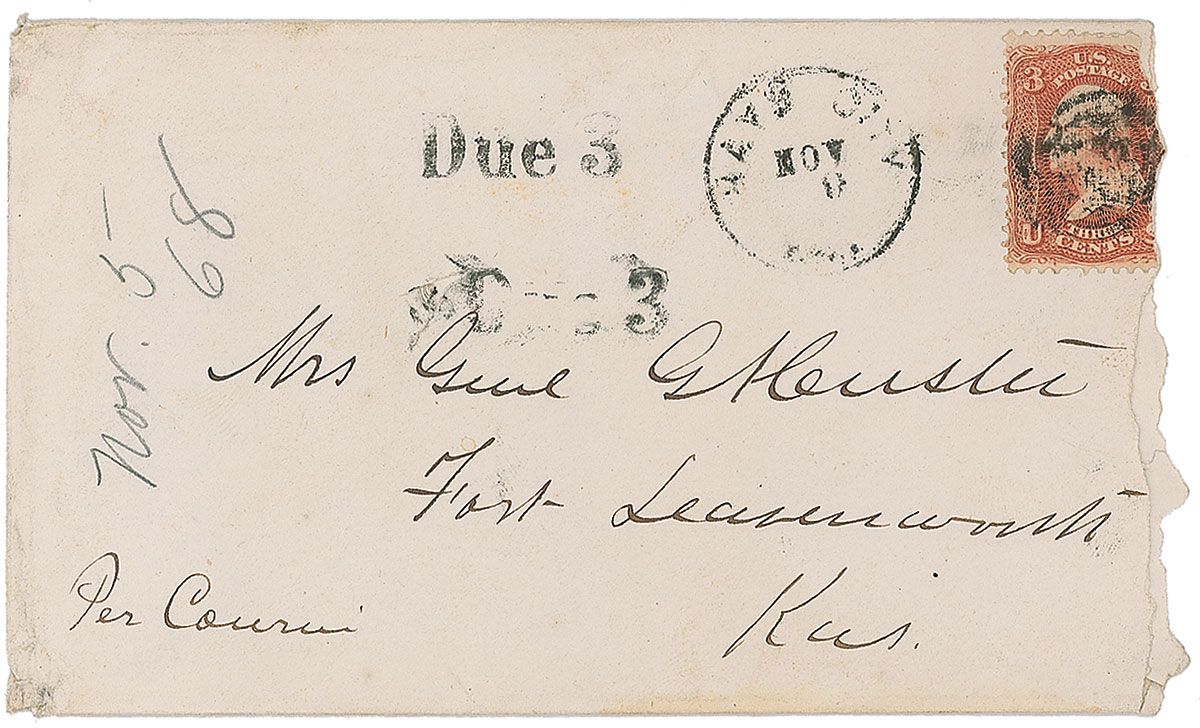 Due 3
HAYS CITY
NOV
6
3
U.S.
POSTAGE
THREE
CENTS
U
Due 3
Nov. 5
68
Mrs Genl G A Custer
Fort Leavenworth
Kas.
Per Courier